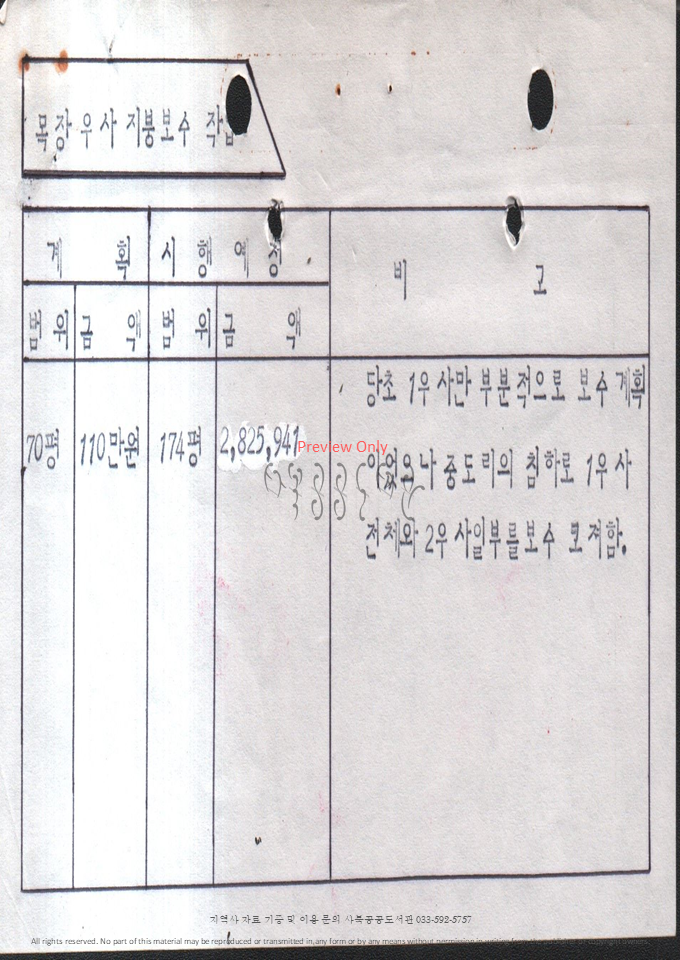 목장 우사 지붕보수 작업
계 획 시 행 예정 비 고
범 위 금 액 범 위 금 액
당초 1우 사만 부분적으로 보수 계획
70평 110만원 174평 2,825,941
Preview Only
이었으나 중도리의 침하로 1우 사
전체와 2우 사일부를보수 모져함.
지역사 자료 기증 및 이용 문의 사북공공도서관 033-592-5757
All rights reserved. No part of this material may be reproduced or transmitted in any form or by any means without permission in